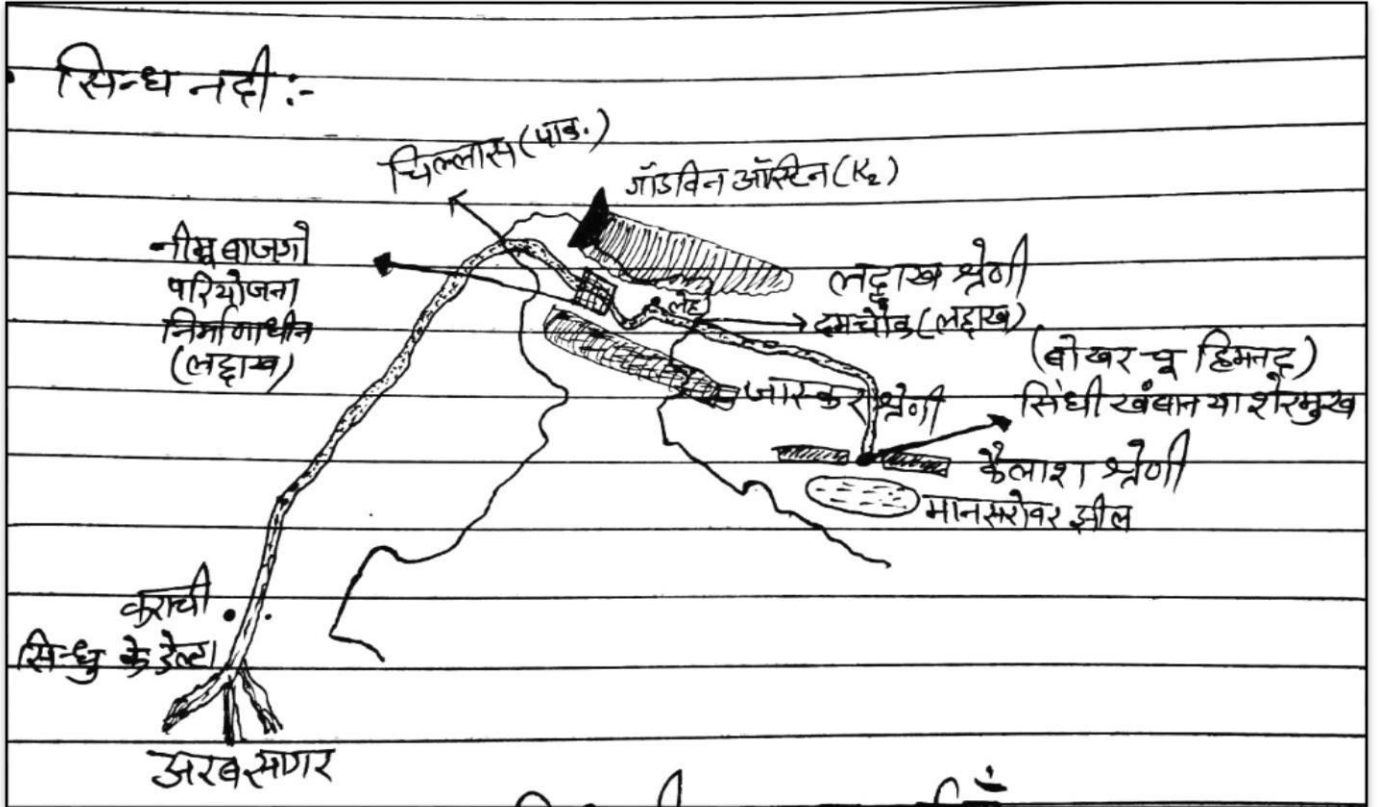 सिन्ध नदी :-
चिल्लास (पाक.)
गॉडविन ऑस्टिन (K₂)
नीमू बाजगो
परियोजना
निर्माणाधीन
(लद्दाख)
लद्दाख श्रेणी
लेह
दमचौक (लद्दाख)
(बोखर चू हिमनद)
जास्कर श्रेणी
सिंघी खंबान या शेरमुख
कैलाश श्रेणी
मानसरोवर झील
कराची
सिन्धु के डेल्टा
अरब सागर